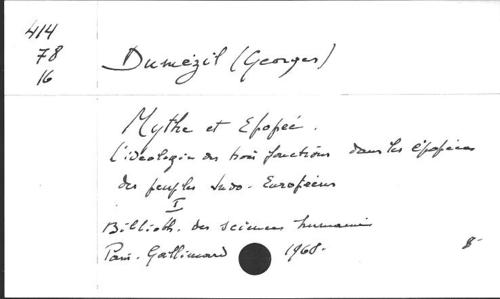 414
78
16
Dumézil (Georges)
Mythe et Epopée.
l'idéologie des trois fonctions dans les épopées
des peuples Indo-Européens
I
Biblioth. des sciences humaines
Paris. Gallimard 1968. 8-